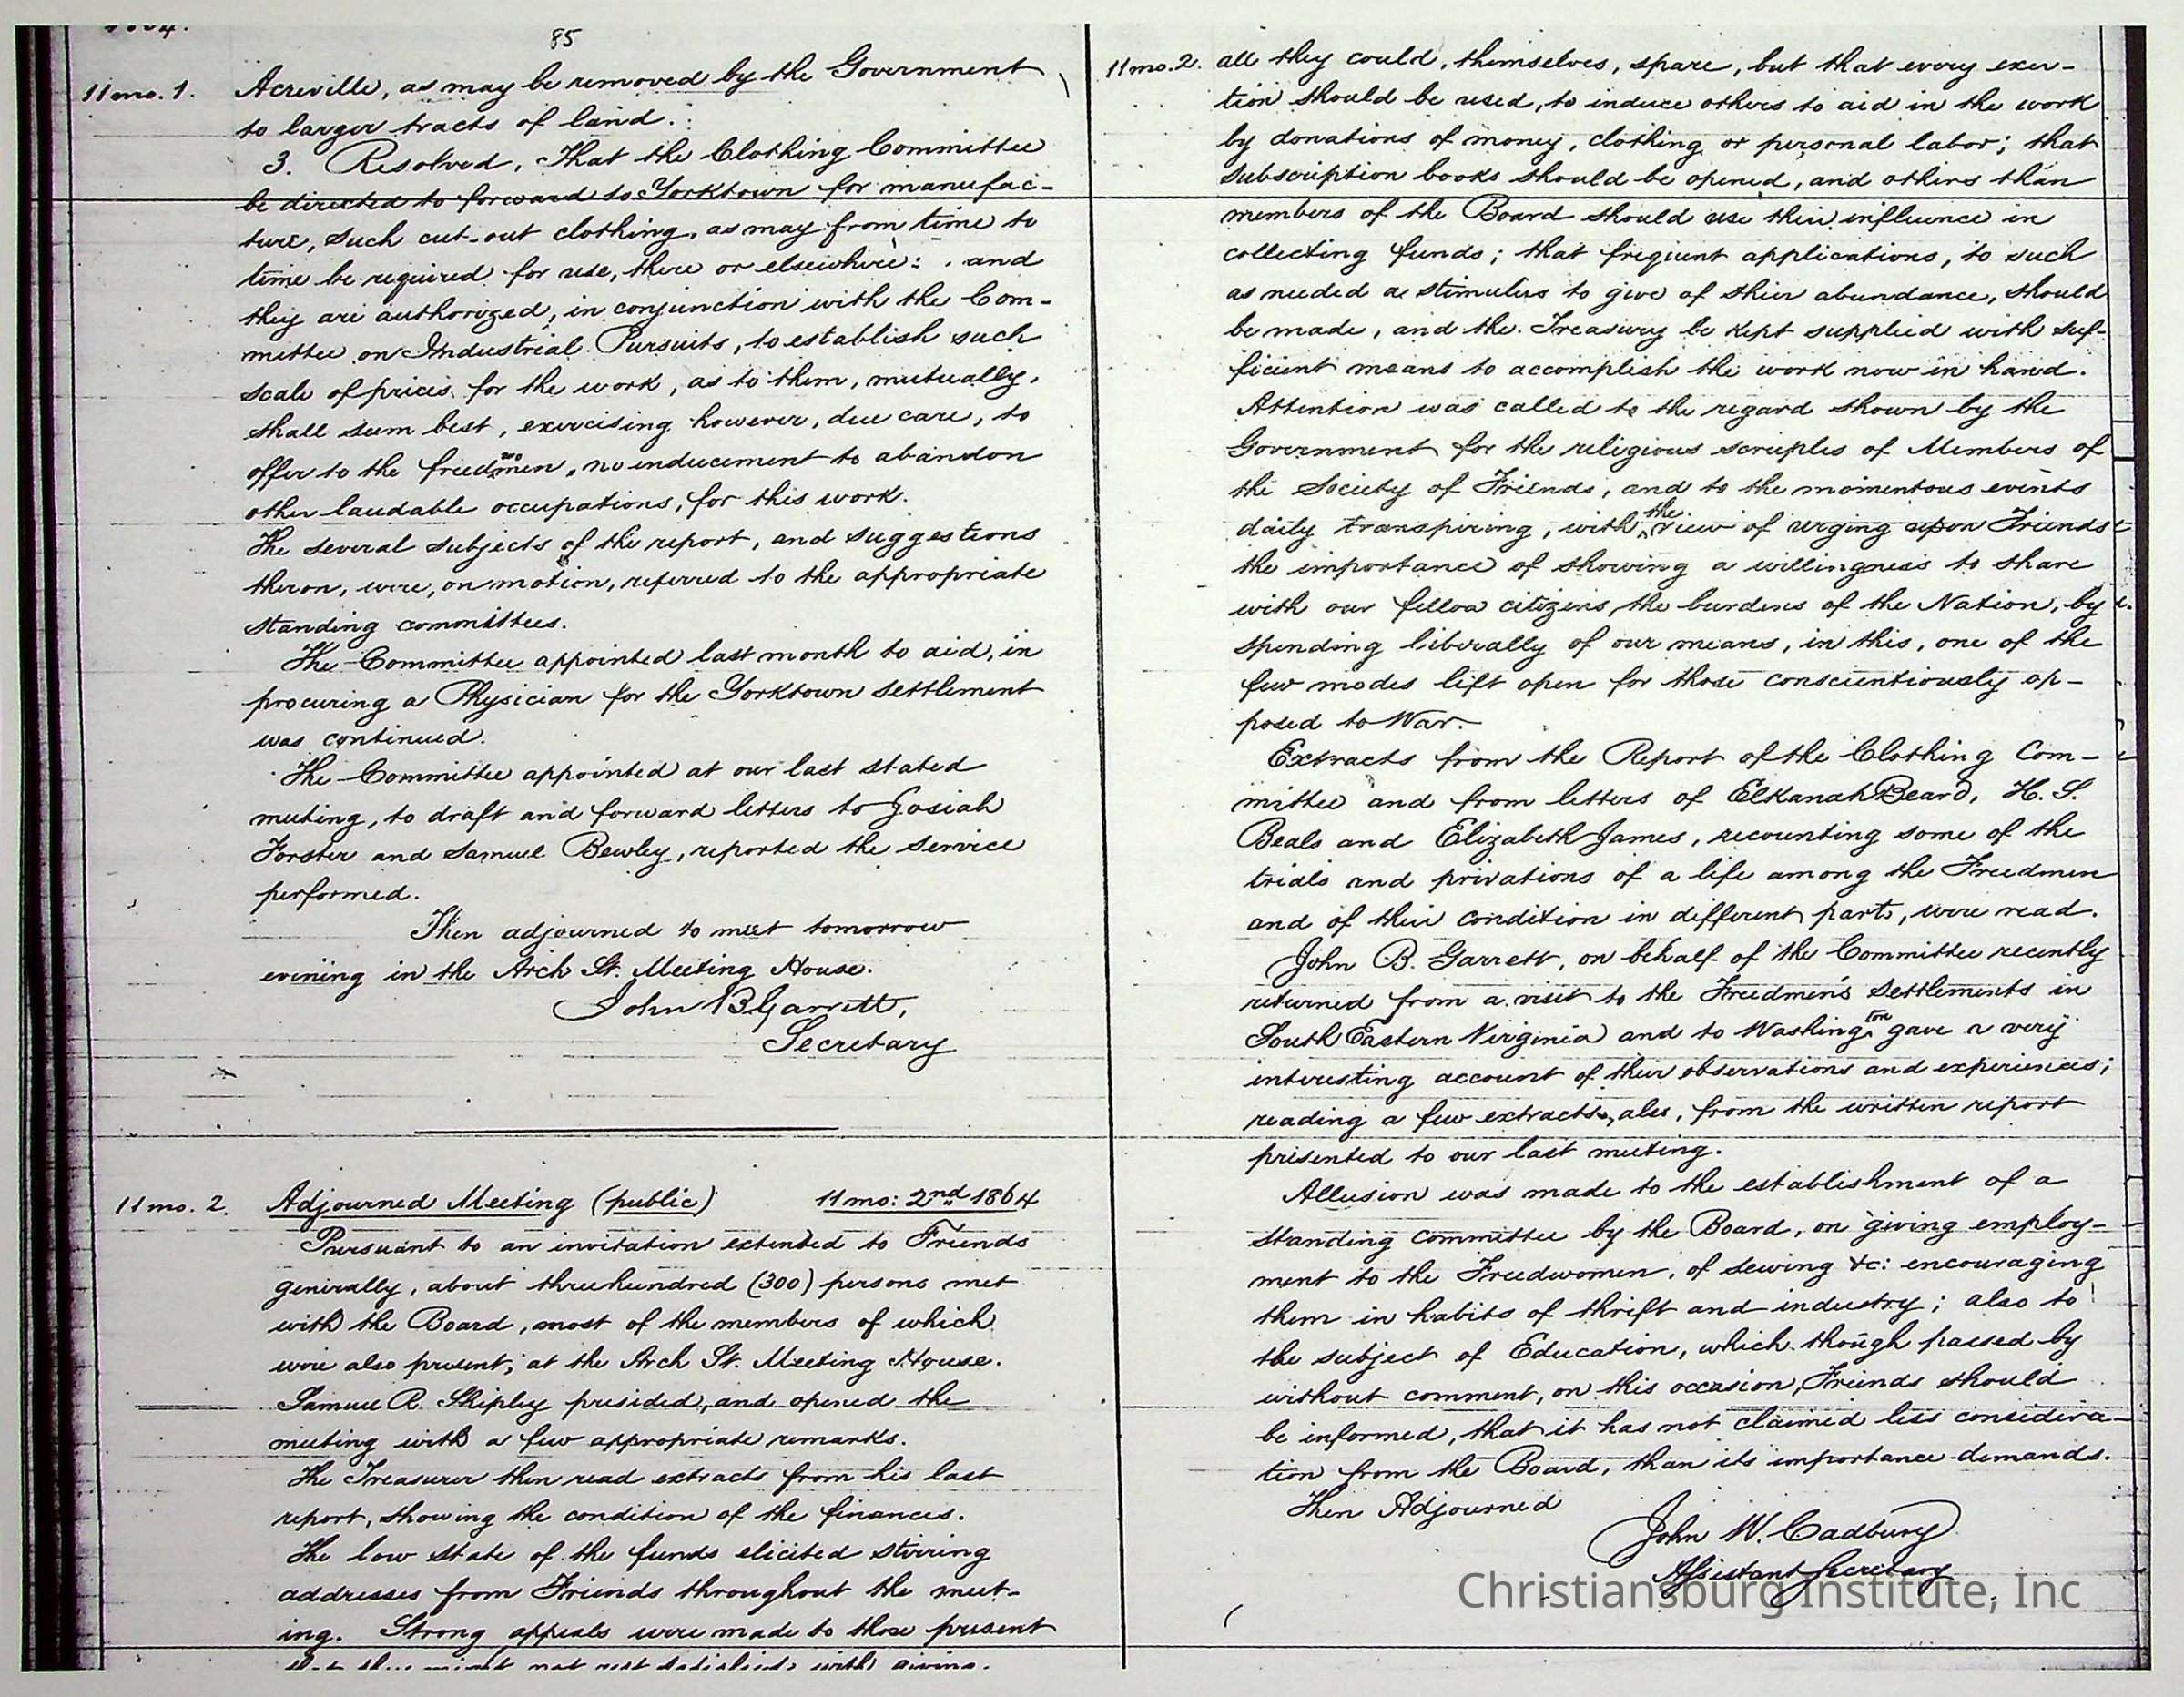 85
11 mo. 1. Acreville, as may be removed by the Government
to larger tracts of land.
3. Resolved, That the Clothing Committee
be directed to forward to Yorktown for manufac-
ture, such cut-out clothing, as may from time to
time be required for use, there or elsewhere: and
they are authorized, in conjunction with the Com-
mittee on Industrial Pursuits, to establish such
scale of prices for the work, as to them, mutually,
shall seem best, exercising however, due care, to
offer to the freedmen, no inducement to abandon
other laudable occupations, for this work.
The several subjects of the report, and suggestions
theron, were, on motion, referred to the appropriate
standing committees.
The Committee appointed last month to aid, in
procuring a Physician for the Yorktown settlement
was continued.
The Committee appointed at our last stated
meeting, to draft and forward letters to Josiah
Forster and Samuel Bewley, reported the service
performed.
Then adjourned to meet tomorrow
evening in the Arch St. Meeting House.
John B Garrett,
Secretary
11 mo. 2. Adjourned Meeting (public) 11 mo: 2nd 1864
Pursuant to an invitation extended to Friends
generally, about threehundred (300) persons met
with the Board, most of the members of which
were also present, at the Arch St. Meeting House.
Samuel R. Shipley presided, and opened the
meeting with a few appropriate remarks.
The Treasurer then read extracts from his last
report, showing the condition of the finances.
The low state of the funds elicited stirring
addresses from Friends throughout the meet-
ing. Strong appeals were made to those present
that they might not rest satisfied with giving
11 mo. 2. all they could, themselves, spare, but that every exer-
tion should be used, to induce others to aid in the work
by donations of money, clothing or personal labor; that
subscription books should be opened, and others than
members of the Board should use their influence in
collecting funds; that frequent applications, to such
as needed a stimulus to give of their abundance, should
be made, and the Treasury be kept supplied with suf-
ficient means to accomplish the work now in hand.
Attention was called to the regard shown by the
Government for the religious scruples of Members of
the Society of Friends, and to the momentous events
daily transpiring, with the view of urging upon Friends
the importance of showing a willingness to share
with our fellow citizens, the burdens of the Nation, by
spending liberally of our means, in this, one of the
few modes left open for those conscientiously op-
posed to War.
Extracts from the Report of the Clothing Com-
mittee and from letters of Elkanah Beard, H. S.
Beals and Elizabeth James, recounting some of the
trials and privations of a life among the Freedmen
and of their condition in different parts, were read.
John B. Garrett, on behalf of the Committee recently
returned from a visit to the Freedmen's Settlements in
South Eastern Virginia and to Washington gave a very
interesting account of their observations and experiences;
reading a few extracts, also, from the written report
presented to our last meeting.
Allusion was made to the establishment of a
standing committee by the Board, on giving employ-
ment to the Freedwomen, of sewing &c: encouraging
them in habits of thrift and industry; also to
the subject of Education, which though passed by
without comment, on this occasion, Friends should
be informed, that it has not claimed less considera-
tion from the Board, than its importance demands.
Then Adjourned
John W. Cadbury
Assistant Secretary
Christiansburg Institute, Inc